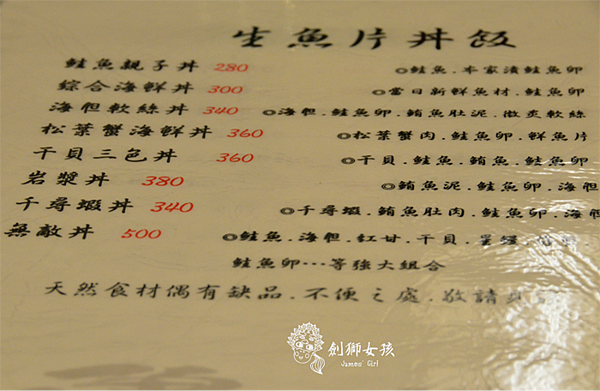 生魚片丼飯
鮭魚親子丼 280 ◎鮭魚.本家漬鮭魚卵
綜合海鮮丼 300 ◎當日新鮮魚材.鮭魚卵
海胆軟絲丼 340 ◎海胆.鮭魚卵.鮪魚肚泥.微炙軟絲
松葉蟹海鮮丼 360 ◎松葉蟹肉.鮭魚卵.鮮魚片
干貝三色丼 360 ◎干貝.鮭魚.鮪魚.鮭魚卵
岩漿丼 380 ◎鮪魚泥.鮭魚卵.海胆
千尋蝦丼 340 ◎千尋蝦.鮪魚肚肉.鮭魚卵.海胆
無敵丼 500 ◎鮭魚.海胆.紅甘.干貝.
鮭魚卵…等強大組合
天然食材偶有缺品.不便之處.敬請
劍獅女孩
James' Girl